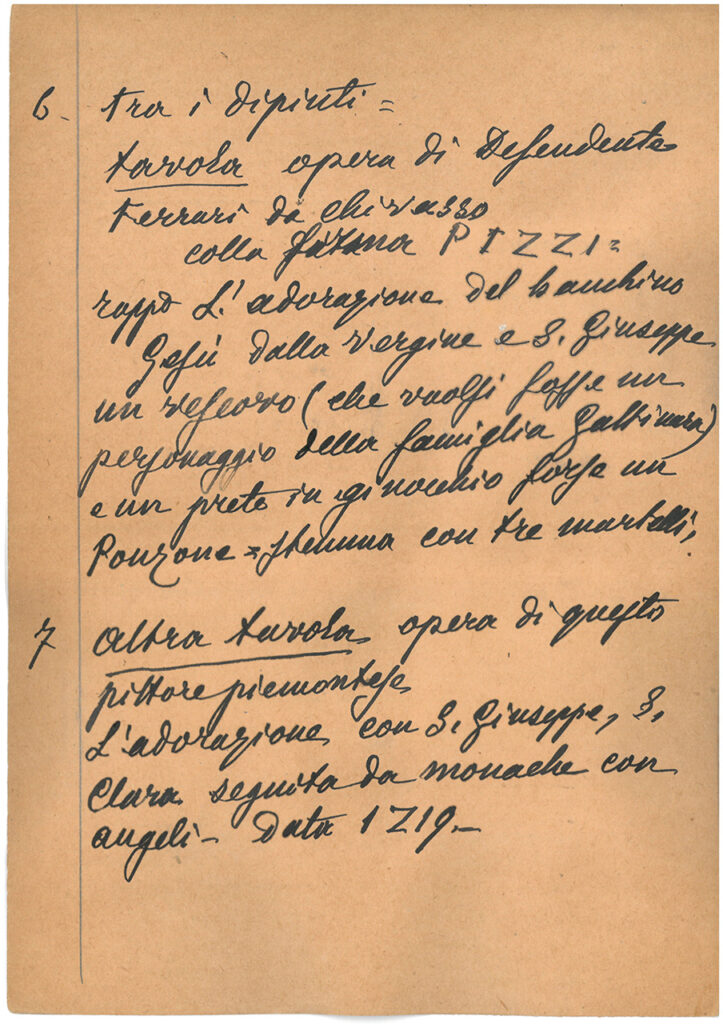 6. tra i dipinti =
tavola opera di Defendente
Ferrari da Chivasso
colla PIZZI =
rapp. L'adorazione del bambino
Gesù dalla Vergine e S. Giuseppe
un vescovo (che vuolsi fosse un
personaggio della famiglia Gattinara)
e un prete in ginocchio forse un
Ponzone = stemma con tre martelli.
7 altra tavola opera di questo
pittore piemontese
L'adorazione con S. Giuseppe, S.
Clara seguita da monache con
angeli - Data 1Z19.-